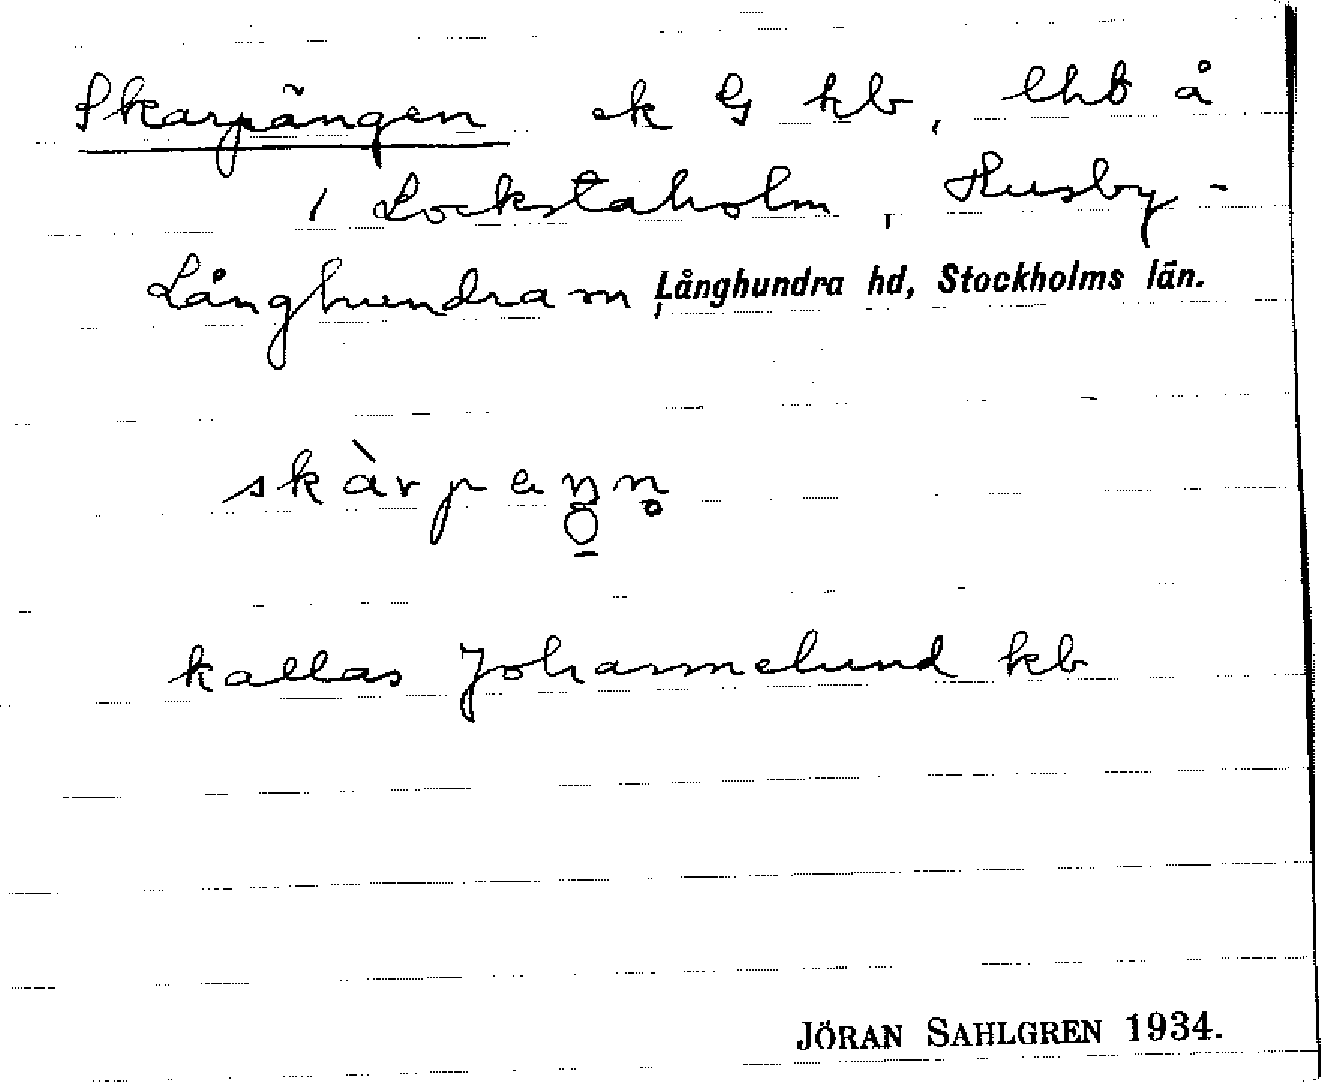 Skarpängen ek G kb, lhb å
1 Lockstaholm, Husby-
Långhundra sn, Långhundra hd, Stockholms län.
skàrpeŋn̥
kallas Johannelund kb
JÖRAN SAHLGREN 1934.